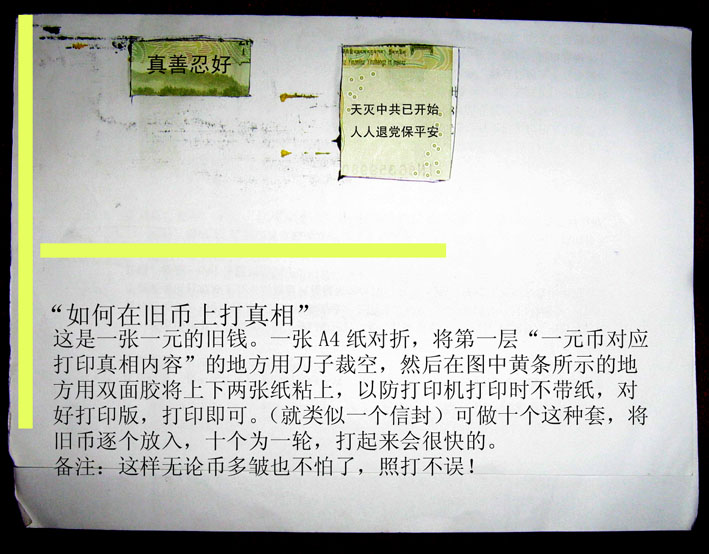 真善忍好
天灭中共已开始
人人退党保平安
“如何在旧币上打真相”
这是一张一元的旧钱。一张A4纸对折，将第一层“一元币对应
打印真相内容”的地方用刀子裁空，然后在图中黄条所示的地
方用双面胶将上下两张纸粘上，以防打印机打印时不带纸，对
好打印版，打印即可。（就类似一个信封）可做十个这种套，将
旧币逐个放入，十个为一轮，打起来会很快的。
备注：这样无论币多皱也不怕了，照打不误！